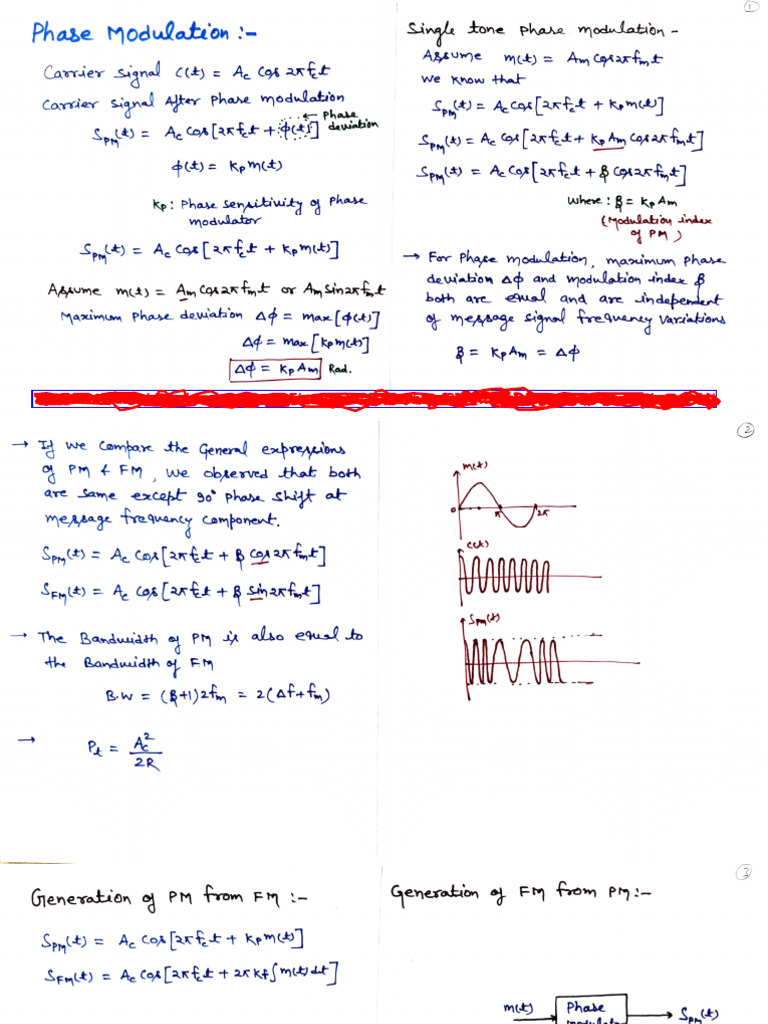 Phase Modulation :-
Carrier signal c(t) = Ac Cos 2πfct
Carrier signal After phase modulation
SPM(t) = Ac Cos[2πfct + φ(t)] ← phase deviation
φ(t) = kp m(t)
kp : Phase sensitivity of phase
modulator
SPM(t) = Ac Cos[2πfct + kp m(t)]
Assume m(t) = Am Cos2πfmt or Am Sin2πfmt
Maximum phase deviation Δφ = max[φ(t)]
Δφ = max[kp m(t)]
Δφ = kp Am Rad.
1
Single tone phase modulation -
Assume m(t) = Am Cos2πfmt
we know that
SPM(t) = Ac Cos[2πfct + kp m(t)]
SPM(t) = Ac Cos[2πfct + kp Am Cos2πfmt]
SPM(t) = Ac Cos[2πfct + β Cos2πfmt]
where : β = kp Am
(Modulation index
of PM)
→ For phase modulation, maximum phase
deviation Δφ and modulation index β
both are equal and are independent
of message signal frequency variations
β = kp Am = Δφ
→ If we compare the General expressions
of PM & FM, we observed that both
are same except 90° phase shift at
message frequency component.
SPM(t) = Ac Cos[2πfct + β cos2πfmt]
SFM(t) = Ac Cos[2πfct + β sin2πfmt]
→ The Bandwidth of PM is also equal to
the Bandwidth of FM
B.W = (β+1)2fm = 2(Δf+fm)
→ Pt = Ac²/2R
2
m(t)
0 π 2π
c(t)
SPM(t)
Generation of PM from FM :-
SPM(t) = Ac Cos[2πfct + kp m(t)]
SFM(t) = Ac Cos[2πfct + 2πkf∫m(t)dt]
3
Generation of FM from PM :-
m(t) → Phase → SPM(t)
modulator